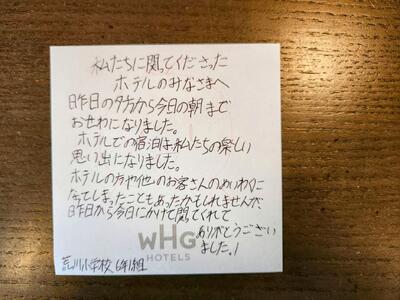 私たちに関ってくださった
ホテルのみなさまへ
昨日の夕方から今日の朝まで
おせわになりました。
ホテルでの宿泊は私たちの楽しい
思い出になりました。
ホテルの方や他のお客さんのめいわくに
なってしまったこともあったかもしれませんが
昨日から今日にかけて関ってくれて
ありがとうござい
ました!
WHG
HOTELS
荒川小学校 6年1組